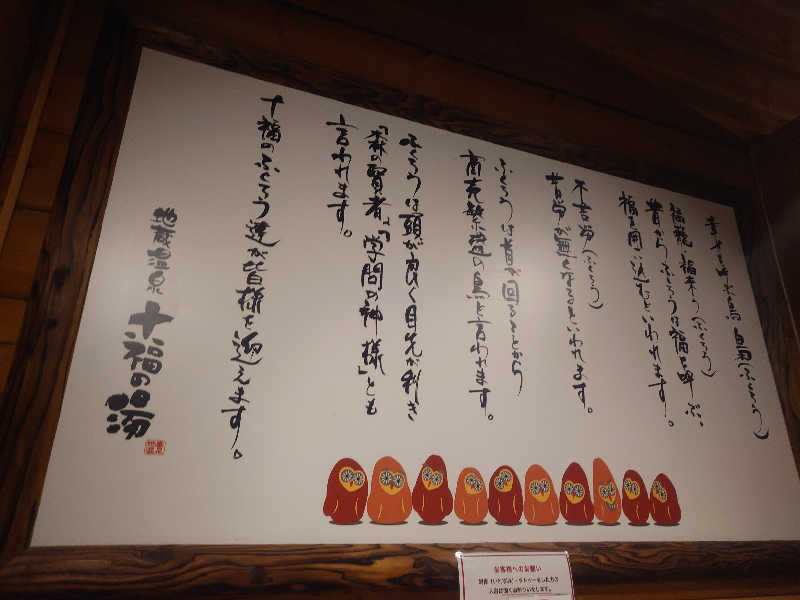 幸せを呼ぶ鳥 梟(ふくろう)
福籠・福来ろう(ふくろう)
昔からふくろうは福を呼ぶ、
福を囲い込むといわれます。
不苦労(ふくろう)
苦労が無くなるといわれます。
ふくろうは首が回ることから
商売繁盛の鳥と言われます。
ふくろうは頭が良く目先が利き
「森の賢者」、「学問の神様」とも
言われます。
十福のふくろう達が皆様を迎えます。
地蔵温泉
十福の湯
お客様へのお願い
刺青(いれずみ)・タトゥーをした方の
入浴は固くお断りいたします。